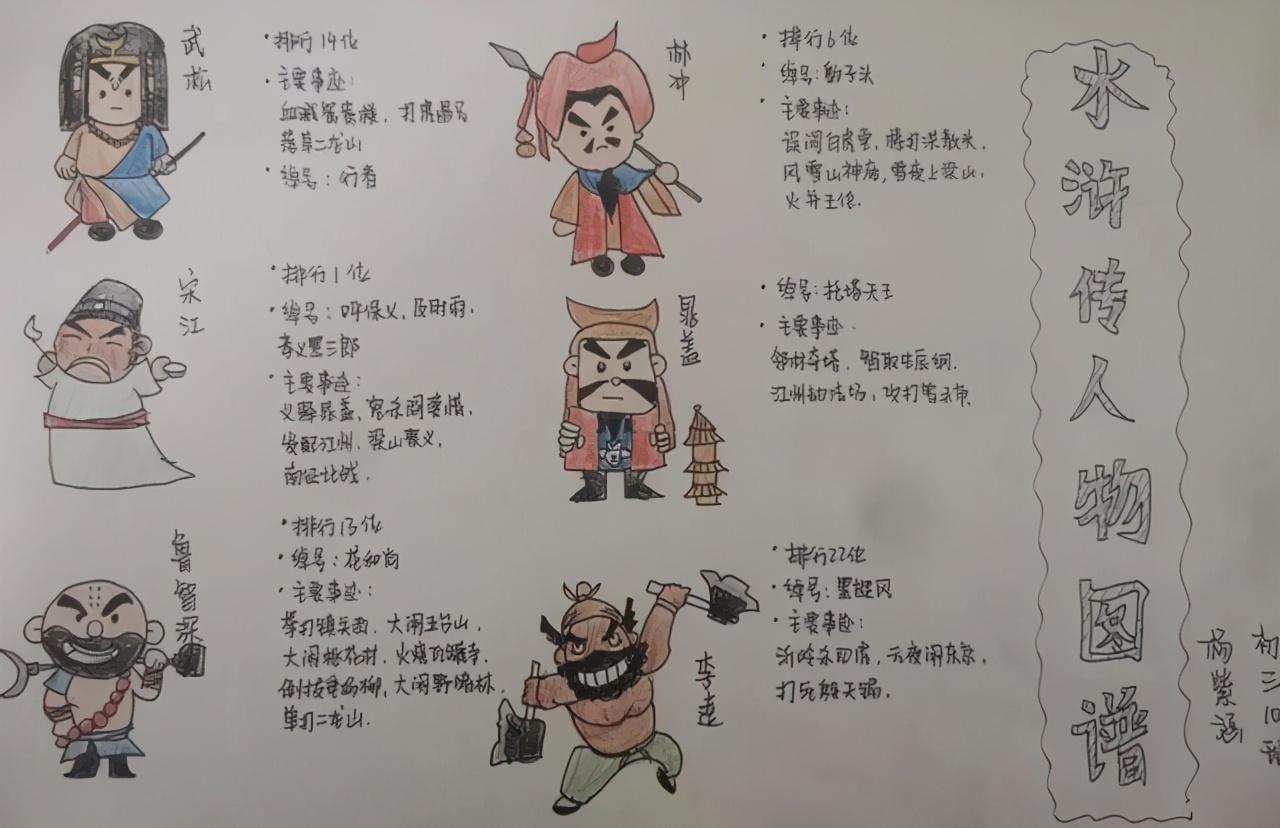 水浒传人物图谱
初三10班
杨紫涵
武松
·排行14位
·主要事迹:
血溅鸳鸯楼,打虎
落草二龙山
·绰号:行者
林冲
·排行6位
·绰号:豹子头
·主要事迹:
误闯白虎堂,棒打洪教头,
风雪山神庙,雪夜上梁山,
火并王伦.
宋江
·排行1位
·绰号:呼保义,及时雨,
孝义黑三郎
·主要事迹:
义释晁盖,怒杀阎婆惜,
发配江州,梁山聚义,
南征北战.
晁盖
·绰号:托塔天王
·主要事迹.
邻村夺塔,智取生辰纲.
江州劫法场,攻打曾头市.
鲁智深
·排行13位
·绰号:花和尚
·主要事迹:
拳打镇关西.大闹五台山,
大闹桃花村,火烧瓦罐寺.
倒拔垂杨柳,大闹野猪林.
单打二龙山.
李逵
·排行22位
·绰号:黑旋风
·主要事迹:
沂岭杀四虎,元夜闹东京,
打死殷天锡.